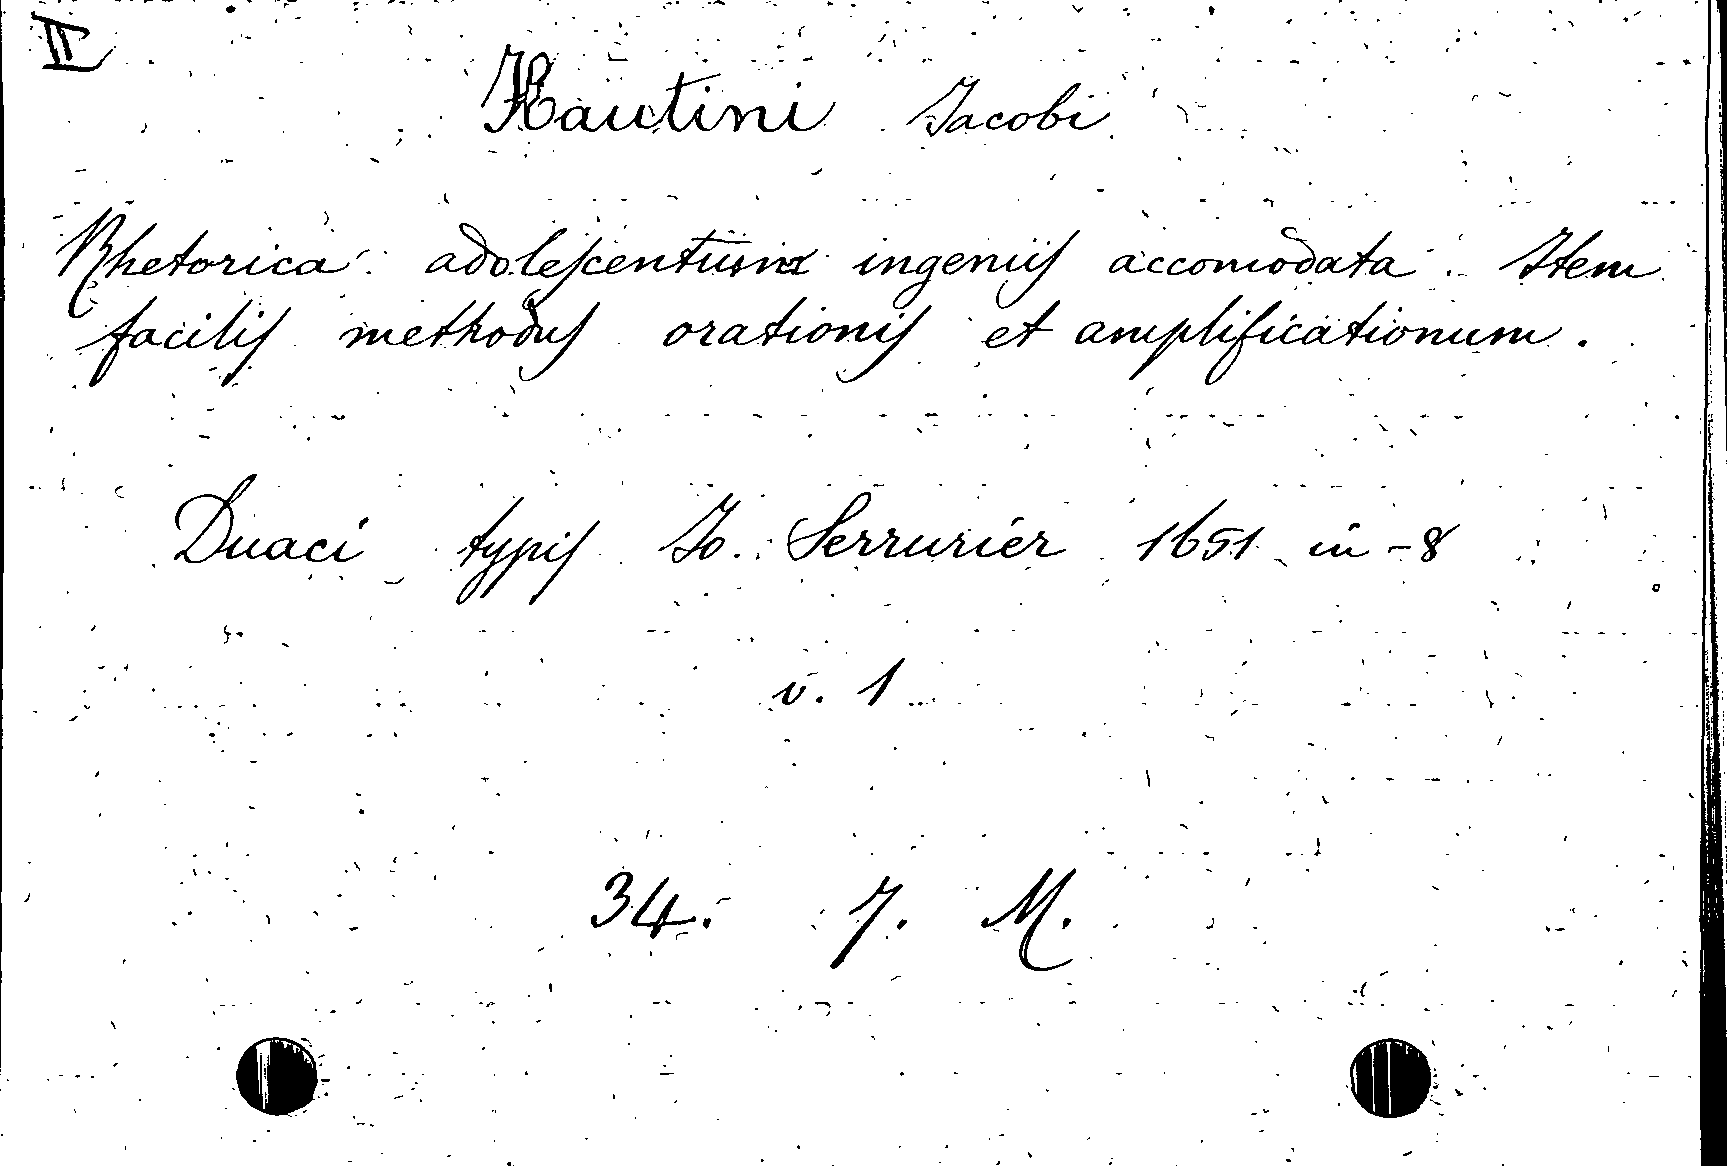 II
Hautini Jacobi
Rhetorica adolescentium ingeniis accomodata. Item
facilis methodus orationis et amplificationum.
Duaci typis Jo. Serrurier 1651 in-8
v. 1
34. 7. M.